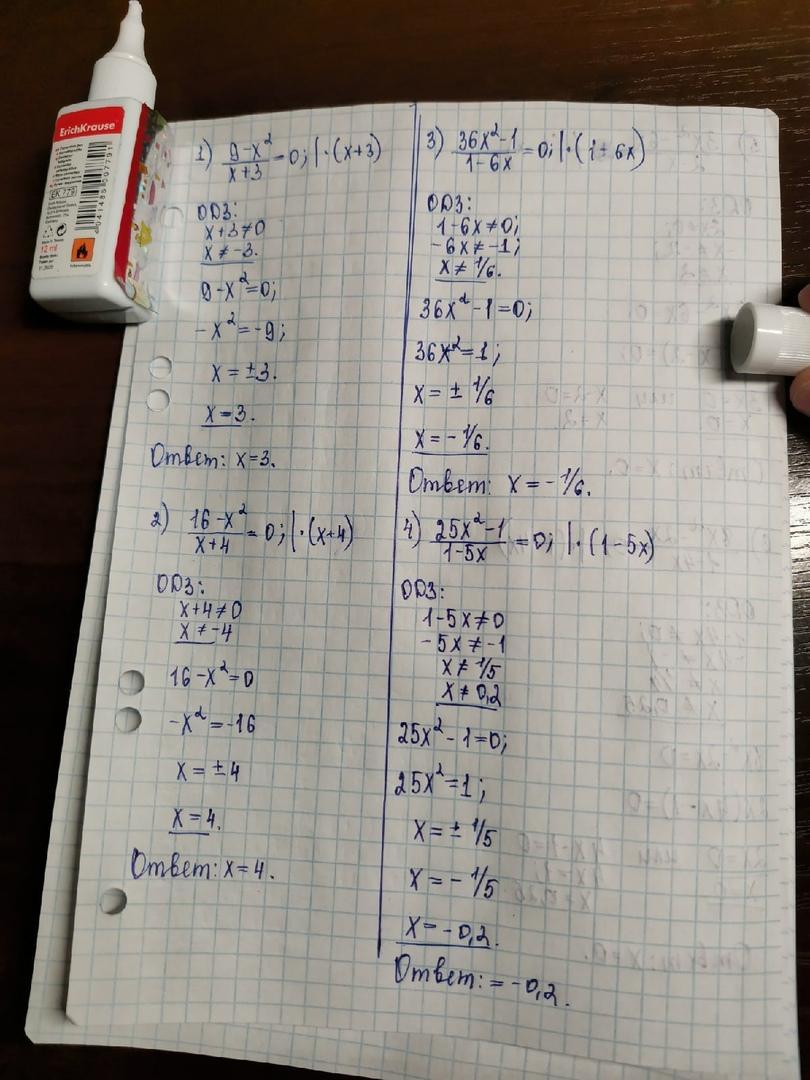 ErichKrause
EK 779
4 041485 097791
12 ml
1) (9-x²)/(x+3) = 0; | · (x+3)
ОДЗ:
x+3≠0
x ≠ -3.
9-x²=0;
-x²=-9;
x = ±3.
x=3.
Ответ: x=3.
2) (16-x²)/(x+4) = 0; | · (x+4)
ОДЗ:
x+4≠0
x ≠ -4
16-x²=0
-x²=-16
x = ±4
x=4.
Ответ: x=4.
3) (36x²-1)/(1-6x) = 0; | · (1-6x)
ОДЗ:
1-6x≠0;
-6x≠-1;
x≠ 1/6.
36x²-1=0;
36x²=1;
x = ± 1/6
x = - 1/6.
Ответ: x = - 1/6.
4) (25x²-1)/(1-5x) = 0; | · (1-5x)
ОДЗ:
1-5x≠0
-5x≠-1
x≠ 1/5
x≠ 0,2
25x²-1=0;
25x²=1;
x = ± 1/5
x = - 1/5
x = -0,2.
Ответ: = -0,2.